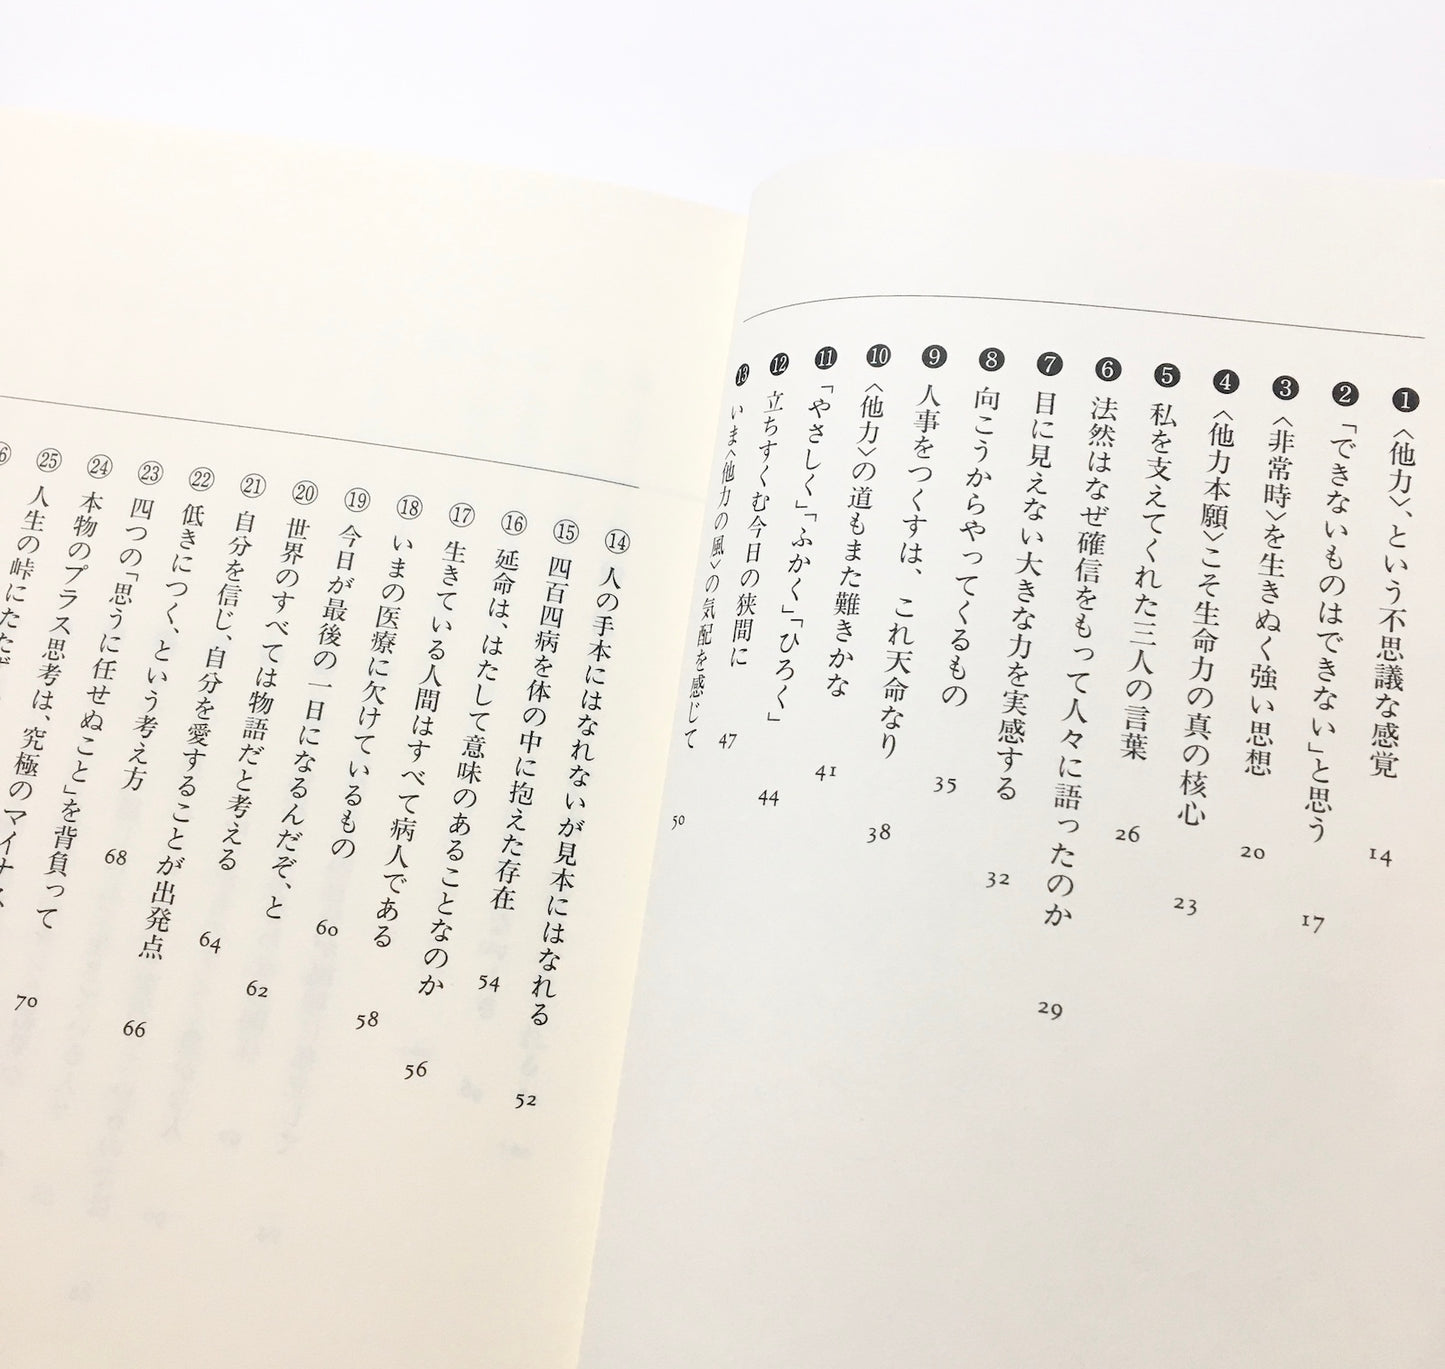 ❶〈他力〉、という不思議な感覚 14
❷「できないものはできない」と思う 17
❸〈非常時〉を生きぬく強い思想 20
❹〈他力本願〉こそ生命力の真の核心 23
❺私を支えてくれた三人の言葉 26
❻法然はなぜ確信をもって人々に語ったのか 29
❼目に見えない大きな力を実感する 32
❽向こうからやってくるもの 35
❾人事をつくすは、これ天命なり 38
❿〈他力〉の道もまた難きかな 41
⓫「やさしく」「ふかく」「ひろく」 44
⓬立ちすくむ今日の狭間に 47
⓭いま〈他力の風〉の気配を感じて 50
⑭人の手本にはなれないが見本にはなれる 52
⑮四百四病を体の中に抱えた存在 54
⑯延命は、はたして意味のあることなのか 56
⑰生きている人間はすべて病人である 58
⑱いまの医療に欠けているもの 60
⑲今日が最後の一日になるんだぞ、と 62
⑳世界のすべては物語だと考える 64
㉑自分を信じ、自分を愛することが出発点 66
㉒低きにつく、という考え方 68
㉓四つの「思うに任せぬこと」を背負って 70
㉔本物のプラス思考は、究極のマイナス
㉕人生の峠にたたず